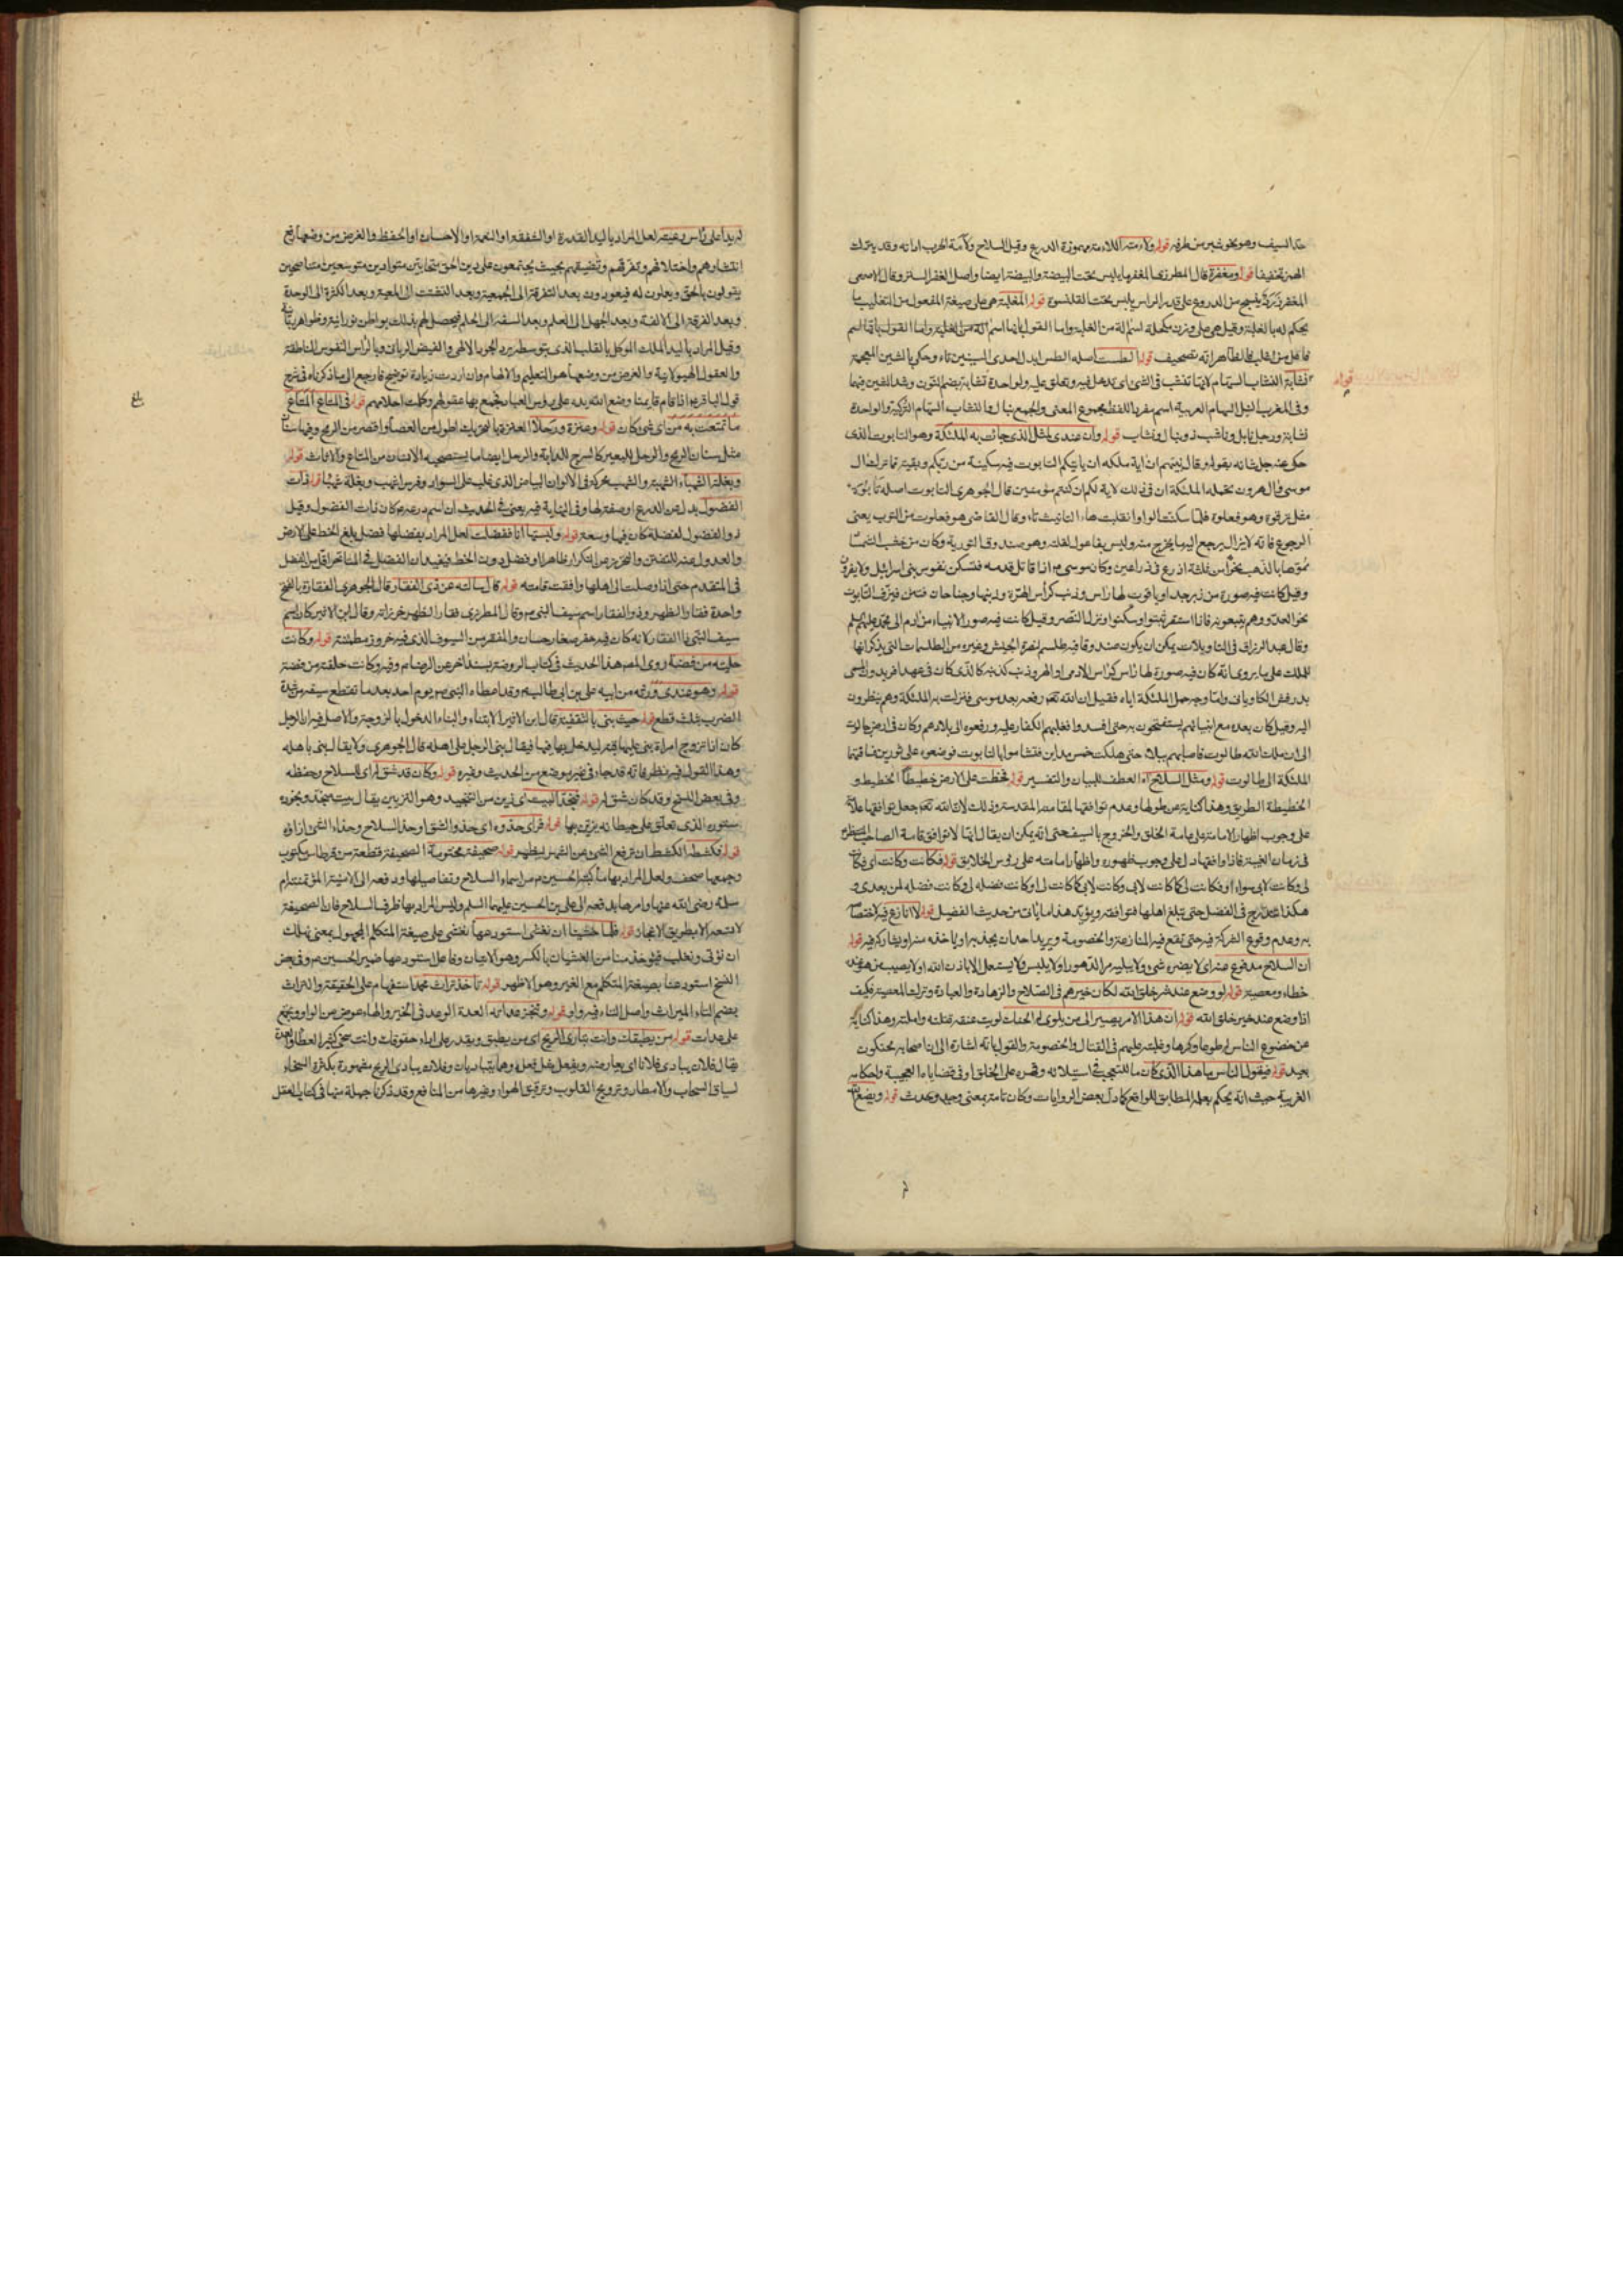 حد السيف وهو نحو شبر من طرفه قوله ولامته اللامة مهموزة الدرع وقيل السلاح ولامة الحرب اداته وقد يترك
الهمزة تخفيفا قوله ومغفره قال المطرزى المغفر ما يلبس تحت البيضة والبيضة ايضا واصل الغفر الستر وقال الاصمعى
المغفر زرد ينسج من الدروع على قدر الراس يلبس تحت القلنسوة قوله المغلبة هى على صيغة المفعول من التغليب ما
يحكم له بالغلبة وقيل هى على وزن مكحلة اسم الة من الغلبة واما القول بانها اسم الة من الغلبة واما القول بانها اسم
فاعل من اغلب فالظاهر انه تصحيف قوله الطست اصله الطس ابدل احدى السينين تاء وحكى بالشين المعجمة
نشابة النشاب السهام لانها تنشب فى الشئ اى تدخل فيه وتعلق عليه والواحدة نشابة بضم النون وشد الشين فيهما
وفى المغرب النبل السهام العربية اسم مفرد اللفظ مجموع المعنى والجمع نبال والنشاب السهام التركية والواحدة
نشابة ورجل نابل وناشب ذو نبال ونشاب قوله وان عندى لمثل الذى جائت به الملئكة وهو التابوت الذى
حكى عنه جل شانه بقوله وقال نبيهم ان اية ملكه ان ياتيكم التابوت فيه سكينة من ربكم وبقية مما ترك ال
موسى وال هرون تحمله الملئكة ان فى ذلك لاية لكم ان كنتم مؤمنين قال الجوهرى التابوت اصله تابوة
مثل ترقوة وهو فعلوة فلما سكنت الواو انقلبت هاء التانيث تاء وقال القاضى هو فعلوت من التوب يعنى
الرجوع فانه لا يزال يرجع اليه ما يخرج منه وليس بفاعول لقلته وهو صندوق التورية وكان من خشب الشمشا
مموها بالذهب نحوا من ثلثة اذرع فى ذراعين وكان موسى ع اذا قاتل قدمه فتسكن نفوس بنى اسرائيل ولا يفرون
وقيل كانت فيه صورة من زبرجد او ياقوت لها راس وذنب كرأس الهرة وذنبها وجناحان فتئن فيزف التابوت
نحو العدو وهم يتبعونه فاذا استقر ثبتوا وسكنوا ونزل النصر وقيل كانت فيه صور الانبياء من ادم الى محمد عليهم السلم
وقال عبد الرزاق فى التاويلات يمكن ان يكون صندوقا فيه طلسم لنصرة الجيش وغيره من الطلسمات التى يذكر انها
للملك على ما يروى انه كان فيه صورة لها راس كراس الادمى او الهر وذنب كذنبه كالذى كان فى عهد افريدون المسمى
بدرفش الكاويانى واما وجه حمل الملئكة اياه فقيل ان الله تعه رفعه بعد موسى فنزلت به الملئكة وهم ينظرون
اليه وقيل كان بعده مع انبيائهم يستفتحون به حتى افسدوا فغلبهم الكفار عليه ورفعوه الى بلادهم وكان فى ارض جالوت
الى ان ملك الله طالوت فاصابهم ببلاء حتى هلكت خمس مداين فتشاموا بالتابوت فوضعوه على ثورين فساقتهما
الملئكة الى طالوت قوله ومثل السلاح العطف للبيان والتفسير قوله فخطت على الارض خطيطا الخطيط و
الخطيطة الطريق وهذا كناية عن طولها وعدم توافقها لقامته المقدسة وذلك لان الله تعه جعل توافقها علامة
على وجوب اظهار الامامة على عامة الخلق والخروج بالسيف حتى انه يمكن ان يقال انها لا توافق قامة الصاحب المنتظر
فى زمان الغيبة فاذا وافقها دل على وجوب ظهوره واظهار امامته على رؤس الخلايق قوله فكانت وكانت اى فكانت
لى وكانت لابى سواء او فكانت لى كما كانت لابى وكانت لابى كما كانت لى او كانت فضله لى وكانت فضله لمن بعدى و
هكذا تتدرج فى الفضل حتى تبلغ اهلها فتوافقه ويؤيد هذا ما ياتى من حديث الفضيل قوله لا انازع فيه لاختصاصه
به وعدم وقوع الشركة فيه حتى تقع فيه المنازعة والخصومة ويريد احدان يجذبه او ياخذه سرا ويشاركه فيه قوله
ان السلاح مدفوع عنه اى لا يضره شئ ولا يبليه مر الدهور او لا يلبس ولا يستعمل الا باذن الله او لا يصيب من هو عنده
خطاء ومعصية قوله لو وضع عند شر خلق الله لكان خيرهم فى الصلاح والزهادة والعبادة وترك المعصية فكيف
اذا وضع عند خير خلق الله قوله ان هذا الامر يصير الى من يلوى له الحنك لويت عنقه فتلته واملته وهذا كناية
عن خضوع الناس له طوعا وكرها وغلبته عليهم فى القتال والخصومة والقول بانه اشارة الى ان اصحابه محنكون
بعيد قوله فيقول الناس ما هذا الذى كان ما للتعجب فى استيلائه وقهره على الخلق او فى قضاياه العجيبة واحكامه
الغريبة حيث انه يحكم بعلمه المطابق للواقع كما دل بعض الروايات وكان تامة بمعنى وجد وحدث قوله ويضع الله
قوله
له يدا على راس رعيته لعل المراد باليد القدرة او الشفقة او النعمة او الاحسان او الحفظ والغرض من وضعها رفع
انتشارهم واختلافهم وتفرقهم وتضيقهم بحيث يجتمعون على دين الحق متحابين متوادين متوسعين متناصحين
يقولون بالحق ويعملون له فيعودون بعد التفرقة الى الجمعية وبعد التشتت الى المعية وبعد الكثرة الى الوحدة
وبعد الفرقة الى الالفة وبعد الجهل الى العلم وبعد السفه الى الحلم فيحصل لهم بذلك بواطن نورانية وظواهر ربانية
وقيل المراد باليد الملك الموكل بالقلب الذى بتوسطه يرد الجود الالهى والفيض الربانى وبالراس النفوس الناطقة
والعقول الهيولانية والغرض من وضعها هو التعليم والالهام وان اردت زيادة توضيح فارجع الى ما ذكرناه فى شرح
قول الباقر ع اذا قام قايمنا وضع الله يده على رؤس العباد فجمع بها عقولهم وكملت احلامهم قوله فى المتاع المتاع
ما تمتعت به من اى شئ كان قوله وعنزة ورحلا العنزة بالتحريك اطول من العصا واقصر من الرمح وفيها سنان
مثل سنان الرمح والرحل للبعير كالسرج للدابة والرحل ايضا ما يستصحبه الانسان من المتاع والاثاث قوله
وبغلته الشهباء الشهبة والشهب محركة فى الالوان البياض الذى غلب على السواد وفرس اشهب وبغلة شهباء قوله ذات
الفضول بدل من الدرع او صفة لها وفى النهاية فيه يعنى فى الحديث ان اسم درعه ع كان ذات الفضول وقيل
ذو الفضول لفضلة كان فيها وسعة قوله ولبستها انا ففضلت لعل المراد بفضلها فضل بلغ الخط على الارض
والعدول عنه للتفنن والتحرز عن التكرار ظاهرا او فضل دون الخط فيفيد ان الفضل فى المتاخر اقل من الفضل
فى المتقدم حتى اذا وصلت الى اهلها وافقت قامته قوله قال سالته عن ذى الفقار قال الجوهرى الفقارة بالفتح
واحدة فقار الظهر وذو الفقار اسم سيف النبى ص وقال المطرزى فقار الظهر خرزاته وقال ابن الاثير كان اسم
سيف النبى ذا الفقار لانه كان فيه حفر صغار حسان والمفقر من السيوف الذى فيه حزوز مطمئنة قوله وكانت
حليته من فضة روى المص هذا الحديث فى كتاب الروضة بسند اخر عن الرضا ع وفيه وكانت حلقته من فضة
قوله وهو عندى ورثه من ابيه على بن ابى طالب ع وقد اعطاه النبى ص يوم احد بعد ما تقطع سيفه من شدة
الضرب بثلث قطع قوله حيث بنى بالثقفية قال ابن الاثير الابتناء والبناء الدخول بالزوجة والاصل فيه ان الرجل
كان اذا تزوج امراة بنى عليها قبة ليدخل بها فيها فيقال بنى الرجل على اهله قال الجوهرى ولا يقال بنى باهله
وهذا القول فيه نظر فانه قد جاء فى غير موضع من الحديث وغيره قوله وكان قد شق له اى السلاح وحفظه
وفى بعض النسخ وقد كان شق له قوله فنجد البيت اى زين من التنجيد وهو التزيين يقال بيت منجد ونجوده
ستوره الذى تعلق على حيطانه يزين بها قوله فراى حذوه اى حذو الشق او حذ السلاح وحذاء الشئ ازاؤه
قوله فكشط الكشط ان ترفع الشئ عن الشئ ليظهر قوله صحيفة مختومة الصحيفة قطعة من قرطاس مكتوب
وجمعها صحف ولعل المراد بها ما كتبه الحسين ع من اسماء السلاح وتفاصيلها ودفعه الى الامينة المؤتمنة ام
سلمة رضى الله عنها وامرها بدفعه الى على بن الحسين عليهما السلم وليس المراد بها ظرف السلاح فان الصحيفة
لا تسعه الا بطريق الاعجاز قوله فلما خشينا ان نغشى استودعها نغشى على صيغة المتكلم المجهول بمعنى نهلك
ان نؤتى ونغلب فيؤخذ منا من الغشيان بالكسر وهو الاتيان وفاعل استودعها ضمير الحسين ع وفى بعض
النسخ استودعنا بصيغة المتكلم مع الغير وهو الاظهر قوله تاخذ تراث محمد استفهام على الحقيقة والتراث
بضم التاء الميراث واصل التاء فيه واو قوله وتنجز عداته العدة الوعد فى الخير والهاء عوض من الواو ويجمع
على عدات قوله من يطيقك وانت تبارى الريح اى من يطيق ويقدر على اداء حقوقك وانت سخى كثير العطاء والعدة
يقال فلان يبارى فلانا اى يعارضه ويفعل مثل فعله وهما يتباريان وفلان يبارى الريح مشهورة بكثرة السخاء
لسياق السحاب والامطار وترويح القلوب وترقيق الهواء وغيرها من المنافع وقد ذكرنا جملة منها فى كتاب العقل